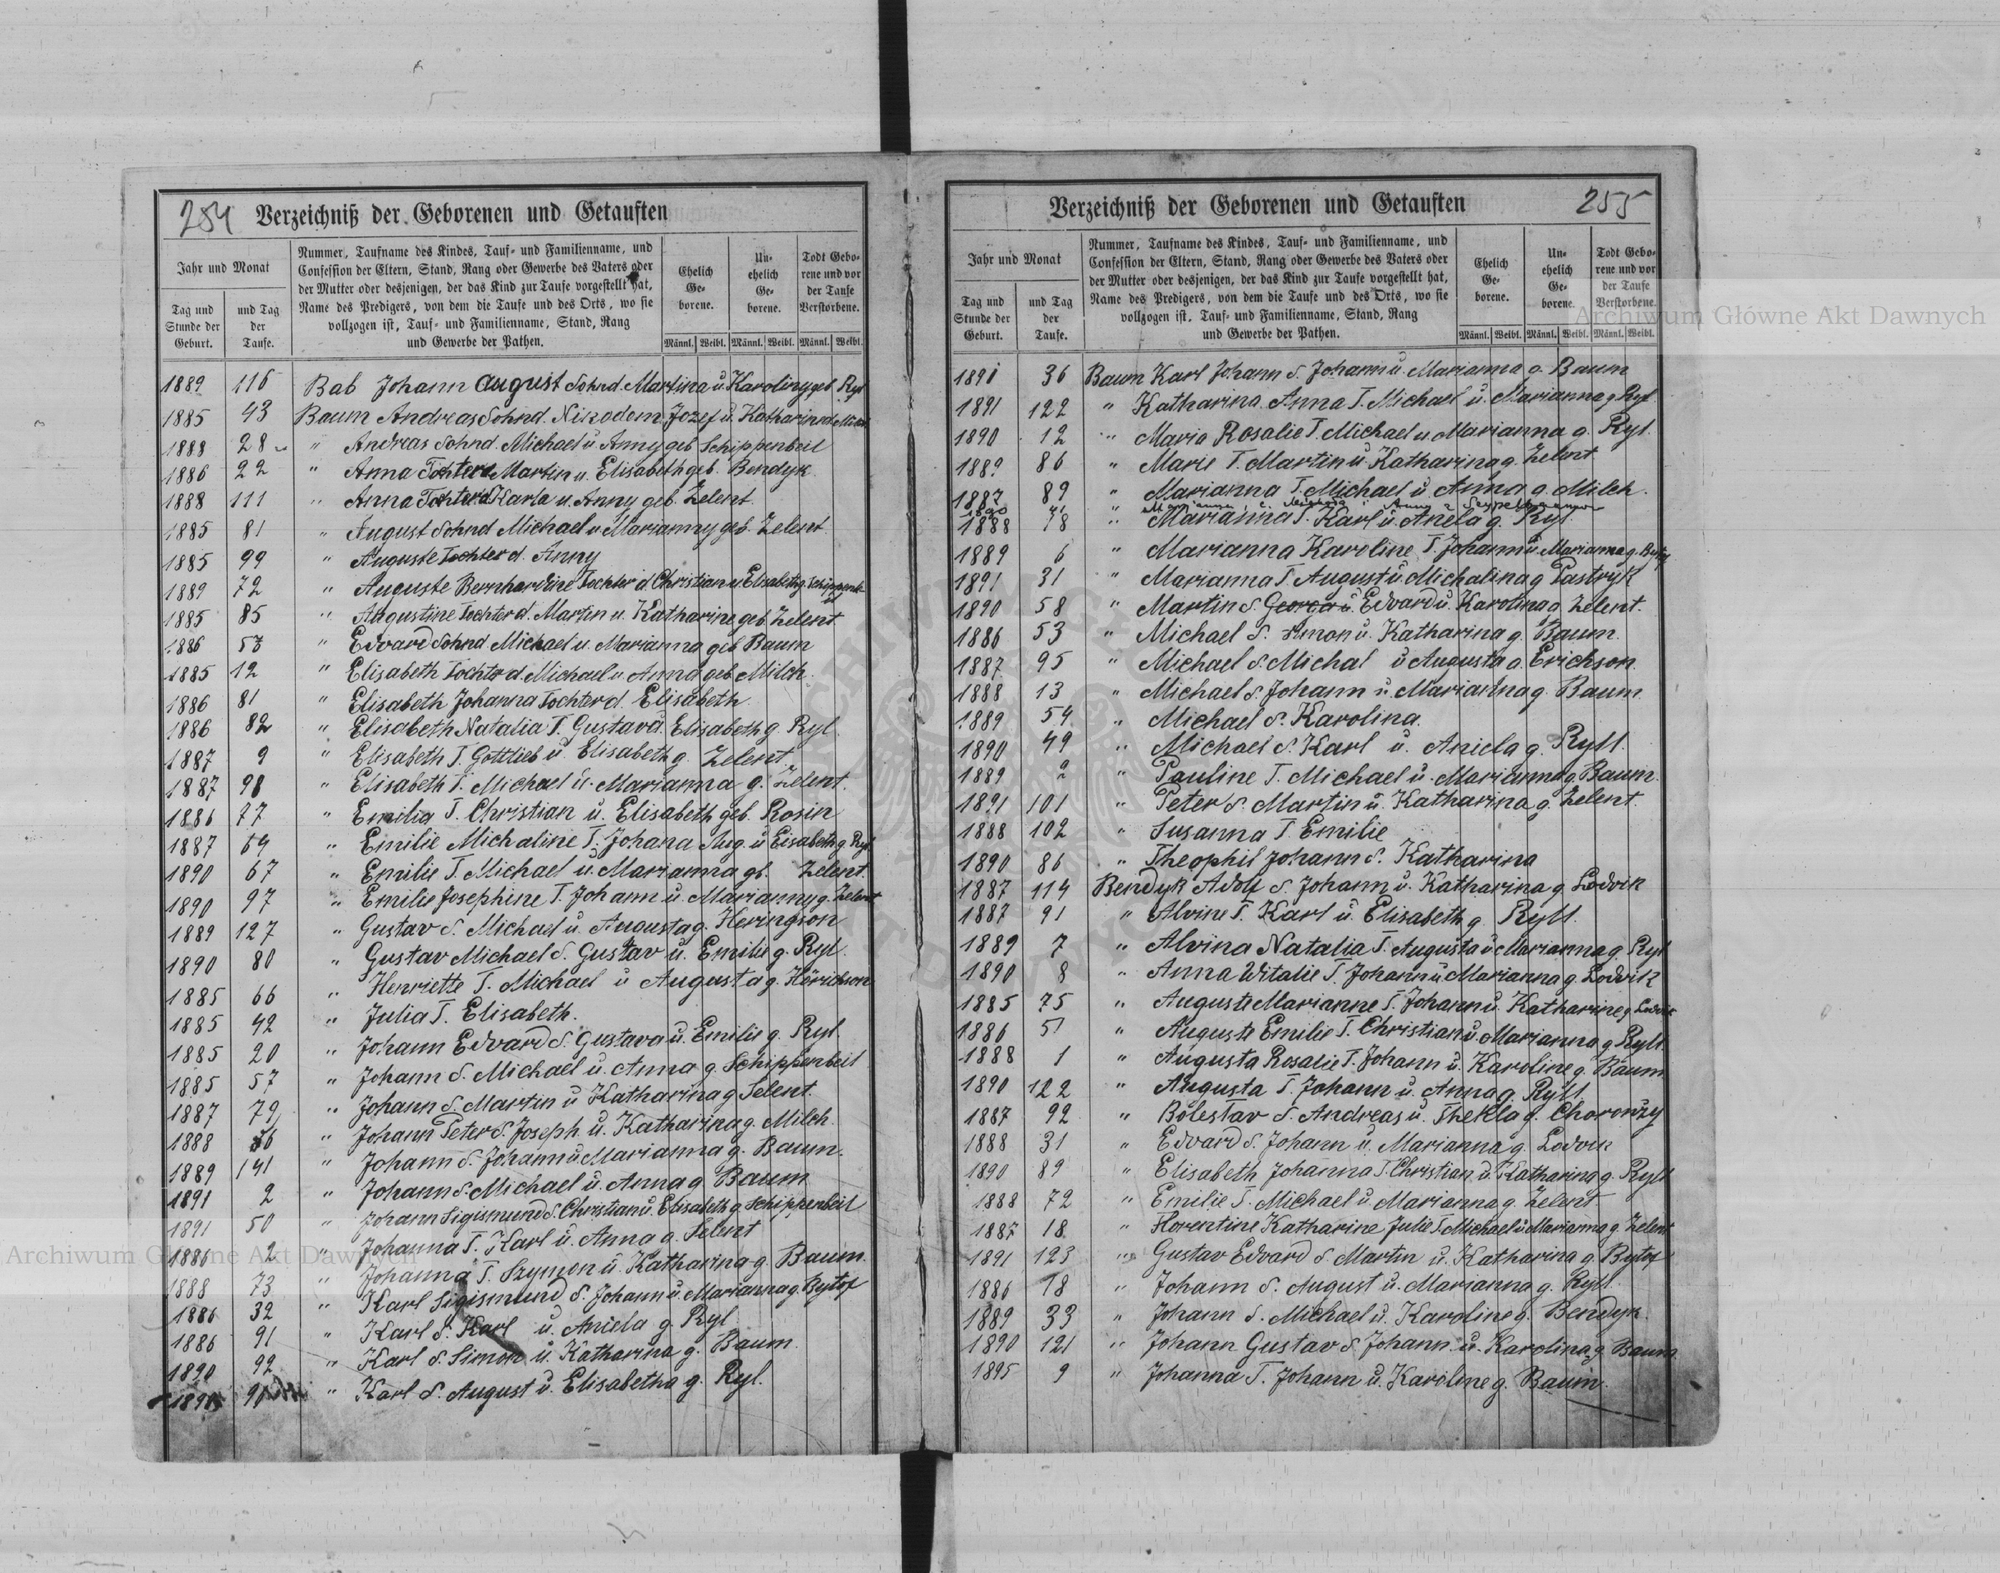 254 Verzeichniß der Geborenen und Getauften
Jahr und Monat
Tag und Stunde der Geburt.
und Tag der Taufe.
Nummer, Taufname des Kindes, Tauf- und Familienname, und
Confession der Eltern, Stand, Rang oder Gewerbe des Vaters oder
der Mutter oder desjenigen, der das Kind zur Taufe vorgestellt hat,
Name des Predigers, von dem die Taufe und des Orts, wo sie
vollzogen ist, Tauf- und Familienname, Stand, Rang
und Gewerbe der Pathen.
Ehelich Ge-borene.
Un-ehelich Ge-borene.
Todt Gebo-rene und vor der Taufe Verstorbene.
Männl. Weibl. Männl. Weibl. Männl. Weibl.
1889 116 Bab Johann August Sohn d. Martina u. Karoliny geb. Ryl
1885 43 Baum Andreas Sohn d. Nikodem Jozef u. Katharina
1888 28 " Andreas Sohn d. Michael u. Anny geb. Schippenbeil
1886 22 " Anna Tochter d. Martin u. Elisabeth geb. Bendyk
1888 111 " Anna Tochter d. Karla u. Anny geb. Zelent
1885 81 " August Sohn d. Michael u. Marianny geb. Zelent
1885 99 " Auguste Tochter d. Anny
1889 72 " Auguste Bernhardine Tochter d. Christian u. Elisabeth g.
1885 85 " Augustine Tochter d. Martin u. Katharine geb. Zelent
1886 53 " Edvard Sohn d. Michael u. Marianna geb. Baum
1885 12 " Elisabeth Tochter d. Michael u. Anna geb. Milch
1886 81 " Elisabeth Johanna Tochter d. Elisabeth
1886 82 " Elisabeth Natalia T. Gustava u. Elisabeth g. Ryl.
1887 9 " Elisabeth T. Gottlieb u. Elisabeth g. Zelent
1887 98 " Elisabeth T. Michael u. Marianna g. Zelent.
1886 77 " Emilia T. Christian u. Elisabeth geb. Rosin
1887 69 " Emilie Michaline T. Johana Aug. u. Eisabeth g. Ryl
1890 67 " Emilie T. Michael u. Marianna gb. Zelent.
1890 97 " Emilie Josephine T. Johann u. Marianny g. Zelent
1889 127 " Gustav S. Michael u. Augusta g. Heringson
1890 80 " Gustav Michael S. Gustav u. Emilie g. Ryl.
1885 66 " Henriette T. Michael u. Augusta g.
1885 42 " Julia T. Elisabeth.
1885 20 " Johann Edvard S. Gustava u. Emilie g. Ryl.
1885 57 " Johann S. Michael u. Anna g. Schippenbeil
1887 79 " Johann S. Martin u. Katharina g. Selent.
1888 " Johann Peter S. Joseph u. Katharina g. Milch.
1889 141 " Johann S. Johann u. Marianna g. Baum.
1891 2 " Johann S. Michael u. Anna g. Baum
1891 50 " Johann Sigismund S. Christian u. Elisabeth g. Schippenbeil
1886 2 " Johanna T. Karl u. Anna g. Selent
1888 73 " Johanna T. Szymon u. Katharina g. Baum.
1886 32 " Karl Sigismund S. Johann u. Marianna g. Bytof
1886 91 " Karl S. Karl u. Aniela g. Ryl
1890 92 " Karl S. Simon u. Katharina g. Baum.
" Karl S. August u. Elisabetha g. Ryl.
Verzeichniß der Geborenen und Getauften 255
Jahr und Monat
Tag und Stunde der Geburt.
und Tag der Taufe.
Nummer, Taufname des Kindes, Tauf- und Familienname, und
Confession der Eltern, Stand, Rang oder Gewerbe des Vaters oder
der Mutter oder desjenigen, der das Kind zur Taufe vorgestellt hat,
Name des Predigers, von dem die Taufe und des Orts, wo sie
vollzogen ist, Tauf- und Familienname, Stand, Rang
und Gewerbe der Pathen.
Ehelich Ge-borene.
Un-ehelich Ge-borene.
Todt Gebo-rene und vor der Taufe Verstorbene.
Männl. Weibl. Männl. Weibl. Männl. Weibl.
1891 36 Baum Karl Johann S. Johann u. Marianna g. Baum
1891 122 " Katharina Anna T. Michael u. Marianna g. Ryl
1890 12 " Maria Rosalie T. Michael u. Marianna g. Ryl.
1889 86 " Marie T. Martin u. Katharina g. Zelent
1887 89 " Marianna T. Michael u. Anna g. Milch.
1890 41 "
1888 78 " Marianna T. Karl u. Aniela g. Ryl
1889 6 " Marianna Karoline T. Johann u. Marianna g.
1891 31 " Marianna T. August u. Michalina g. Pastryk
1890 58 " Martin S. Edvard u. Karolina g. Zelent.
1886 53 " Michael S. Simon u. Katharina g. Baum.
1887 95 " Michael S. Michal u. Augusta g. Erichson.
1888 13 " Michael S. Johann u. Marianna g. Baum.
1889 54 " Michael S. Karolina.
1890 49 " Michael S. Karl u. Aniela g. Ryll.
1889 2 " Pauline T. Michael u. Marianna g. Baum.
1891 101 " Peter S. Martin u. Katharina g. Zelent.
1888 102 " Susanna T. Emilie
1890 86 " Theophil Johann S. Katharina
1887 114 Bendyk Adolf S. Johann u. Katharina g. Lodvik
1887 91 " Alvine T. Karl u. Elisabeth g. Ryll.
1889 7 " Alvina Natalia T. Augusta u. Marianna g. Ryl
1890 8 " Anna Witalie T. Johann u. Marianna g. Lodvik
1885 75 " Auguste Marianne T. Johann u. Katharine g. Lodvik
1886 51 " Auguste Emilie T. Christian u. Marianna g. Ryll.
1888 1 " Augusta Rosalie T. Johann u. Karoline g. Baum
1890 122 " Augusta T. Johann u. Anna g. Ryll.
1887 92 " Boleslav S. Andreas u. Thekla g. Choronży
1888 31 " Edvard S. Johann u. Marianna g. Lodvik
1890 89 " Elisabeth Johanna T. Christian u. Katharina g. Ryll
1888 72 " Emilie T. Michael u. Marianna g. Zelent
1887 18 " Florentine Katharine Julie T. Michael u. Marianna g. Zelent
1891 123 " Gustav Edvard S. Martin u. Katharina g. Bytof
1886 18 " Johann S. August u. Marianna g. Ryll.
1889 33 " Johann S. Michael u. Karoline g. Bendyk.
1890 121 " Johann Gustav S. Johann u. Karolina g. Baum
1895 9 " Johanna T. Johann u. Karoline g. Baum.
Archiwum Główne Akt Dawnych
Archiwum Główne Akt Dawnych